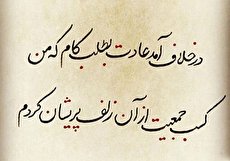 در خلاف آمد عادت بطلب کام که من
کسب جمعیت از آن زلف پریشان کردم